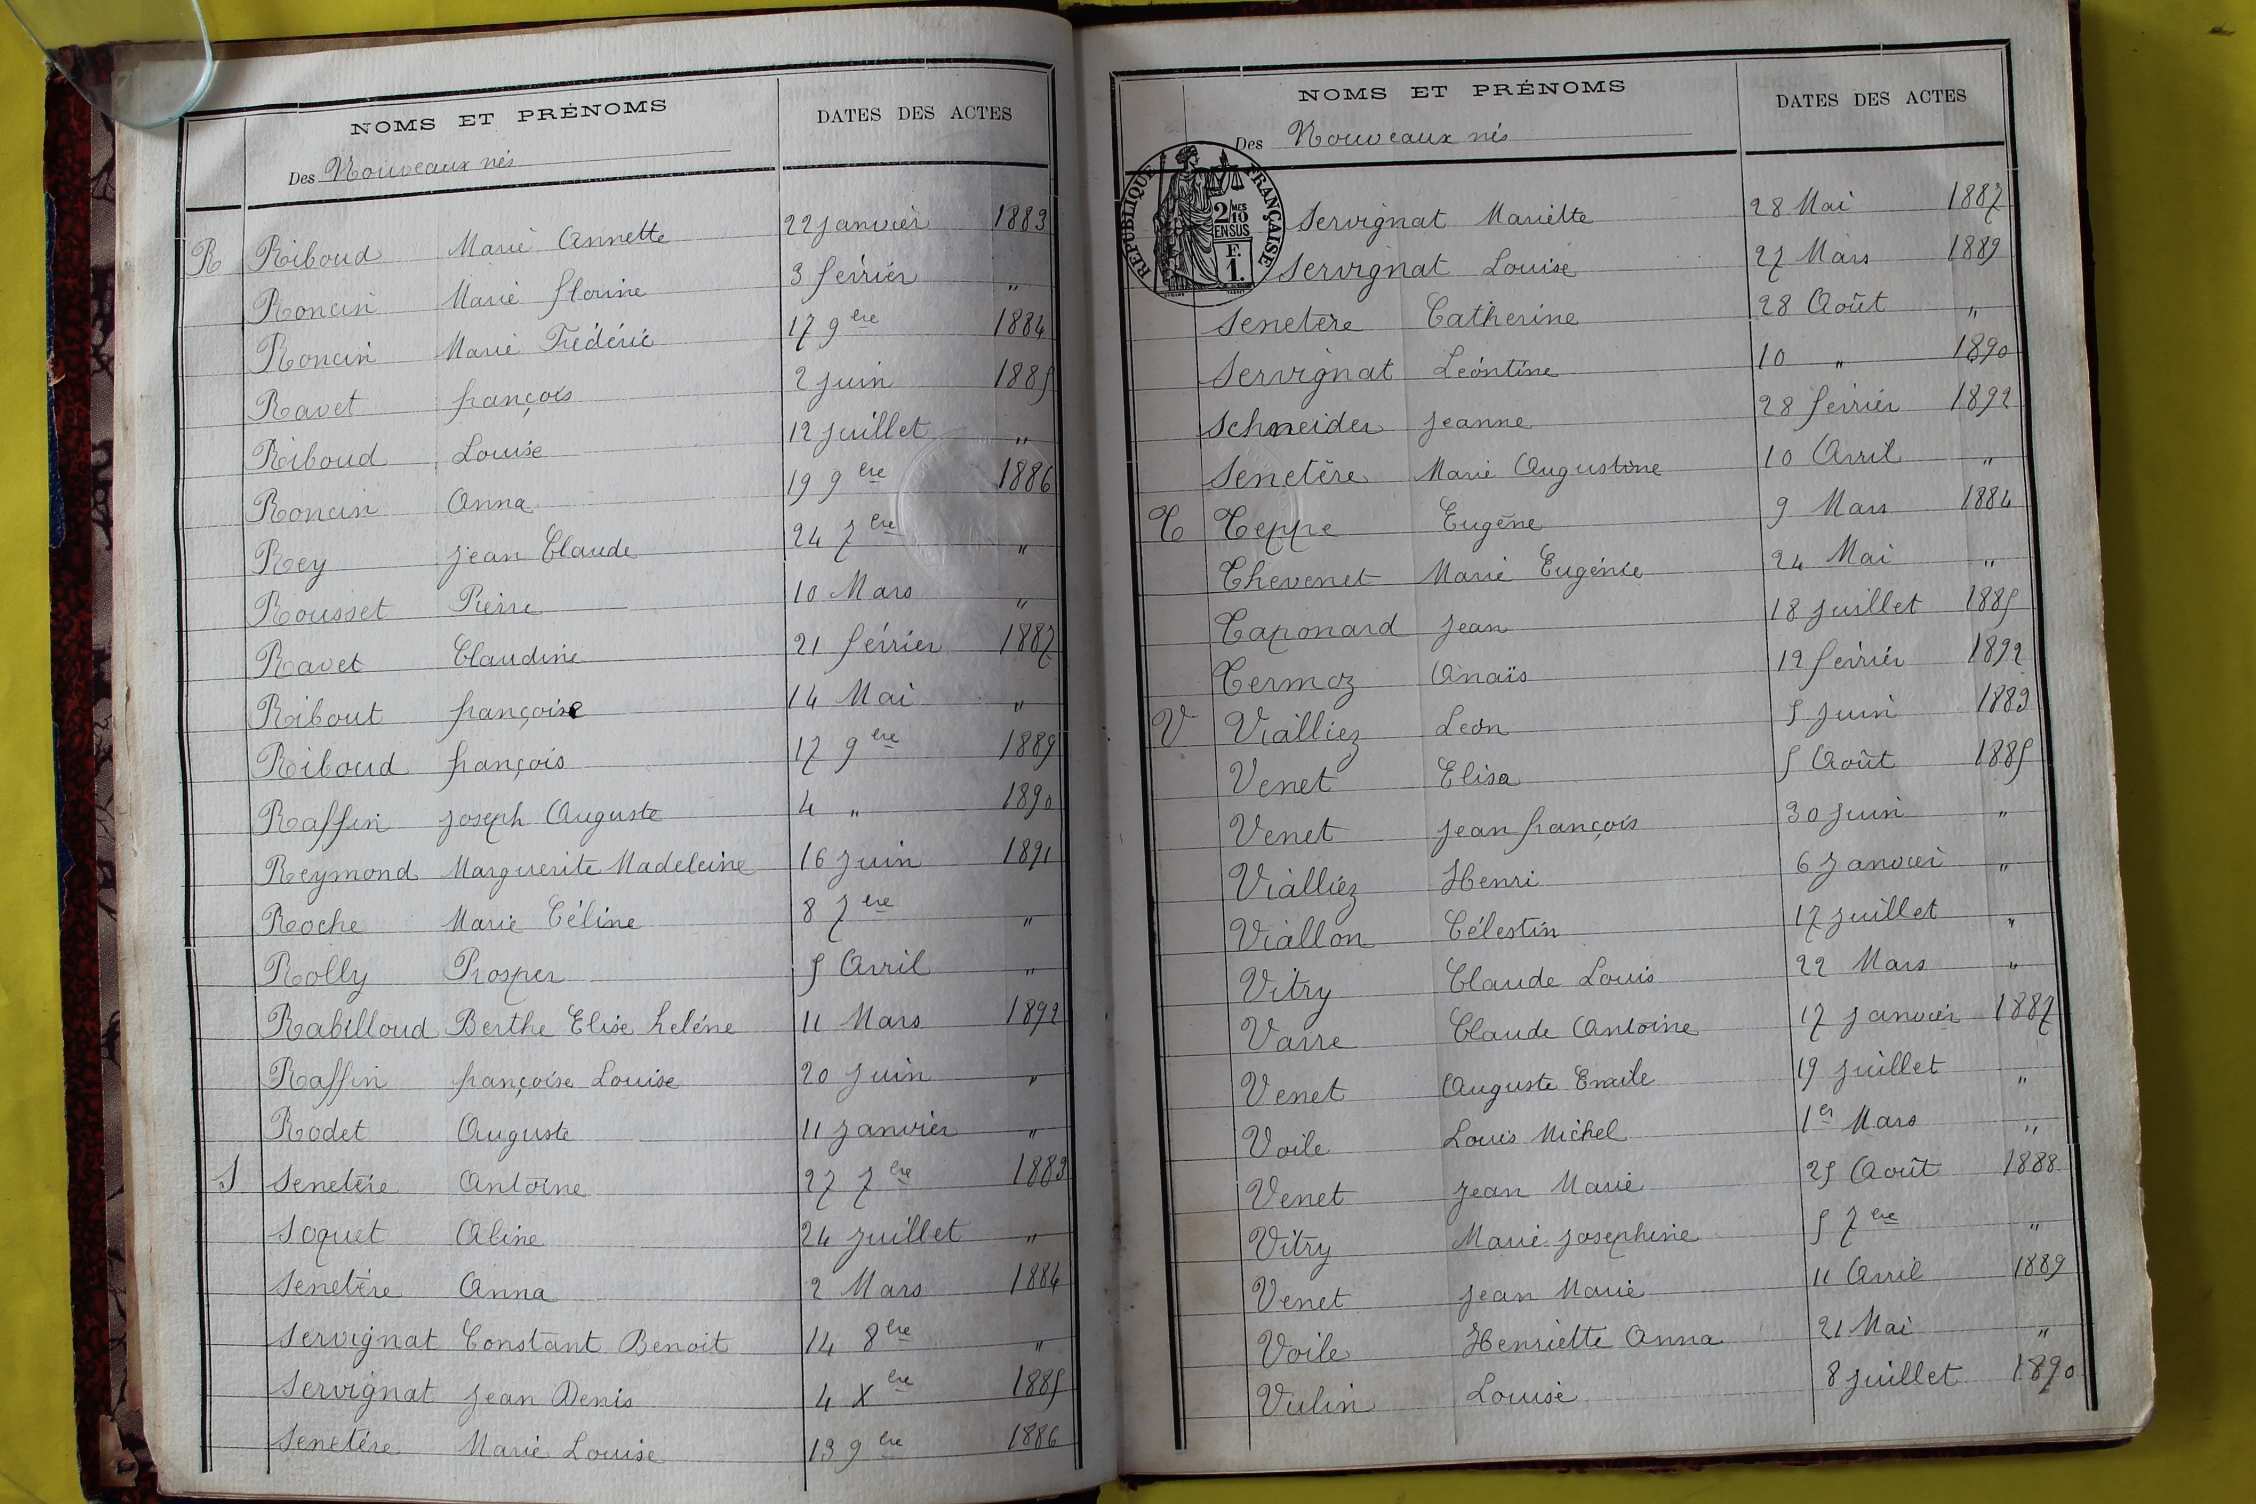 NOMS ET PRÉNOMS DATES DES ACTES
Des Nouveaux nés
R Riboud Marie Annette 22 janvier 1883
Roncin Marie florine 3 février "
Roncin Marie Frédéric 17 9bre 1884
Ravet françois 2 juin 1885
Riboud Louise 12 juillet "
Roncin Anna 19 9bre 1886
Rey Jean Claude 24 7bre "
Rousset Pierre 10 Mars "
Ravet Claudine 21 février 1887
Ribout françoise 14 Mai "
Riboud françois 17 9bre 1889
Raffin Joseph Auguste 4 " 1890
Reymond Marguerite Madeleine 16 juin 1891
Roche Marie Céline 8 7bre "
Rolly Prosper 5 Avril "
Rabilloud Berthe Elise heléne 11 Mars 1892
Raffin françoise Louise 20 juin "
Rodet Auguste 11 janvier "
S Senetère Antoine 27 7bre 1883
Soquet Aline 24 juillet "
Senetère Anna 2 Mars 1884
Servignat Constant Benoit 14 8bre "
Servignat Jean Denis 4 Xbre 1885
Senetère Marie Louise 13 9bre 1886
NOMS ET PRÉNOMS DATES DES ACTES
Des Nouveaux nés
RÉPUBLIQUE FRANÇAISE
2/10 MES
EN SUS
F.
1.
Servignat Mariette 28 Mai 1887
Servignat Louise 27 Mars 1889
Senetère Catherine 28 Août "
Servignat Léontine 10 " 1890
Schneider Jeanne 28 février 1892
Senetère Marie Augustine 10 Avril "
T Teppe Eugène 9 Mars 1884
Thevenet Marie Eugénie 24 Mai "
Taponard Jean 18 juillet 1885
Termoz Anaïs 12 février 1892
V Vialliez Leon 5 juin 1883
Venet Elisa 5 Août 1885
Venet Jean françois 30 juin "
Vialliez Henri 6 janvier "
Viallon Célestin 17 juillet "
Vitry Claude Louis 22 Mars "
Varre Claude Antoine 17 janvier 1887
Venet Auguste Emile 19 juillet "
Voile Louis Michel 1er Mars "
Venet Jean Marie 25 Août 1888
Vitry Marie Josephine 5 7bre "
Venet Jean Marie 11 Avril 1889
Voile Henriette Anna 21 Mai "
Vulin Louise 8 juillet 1890